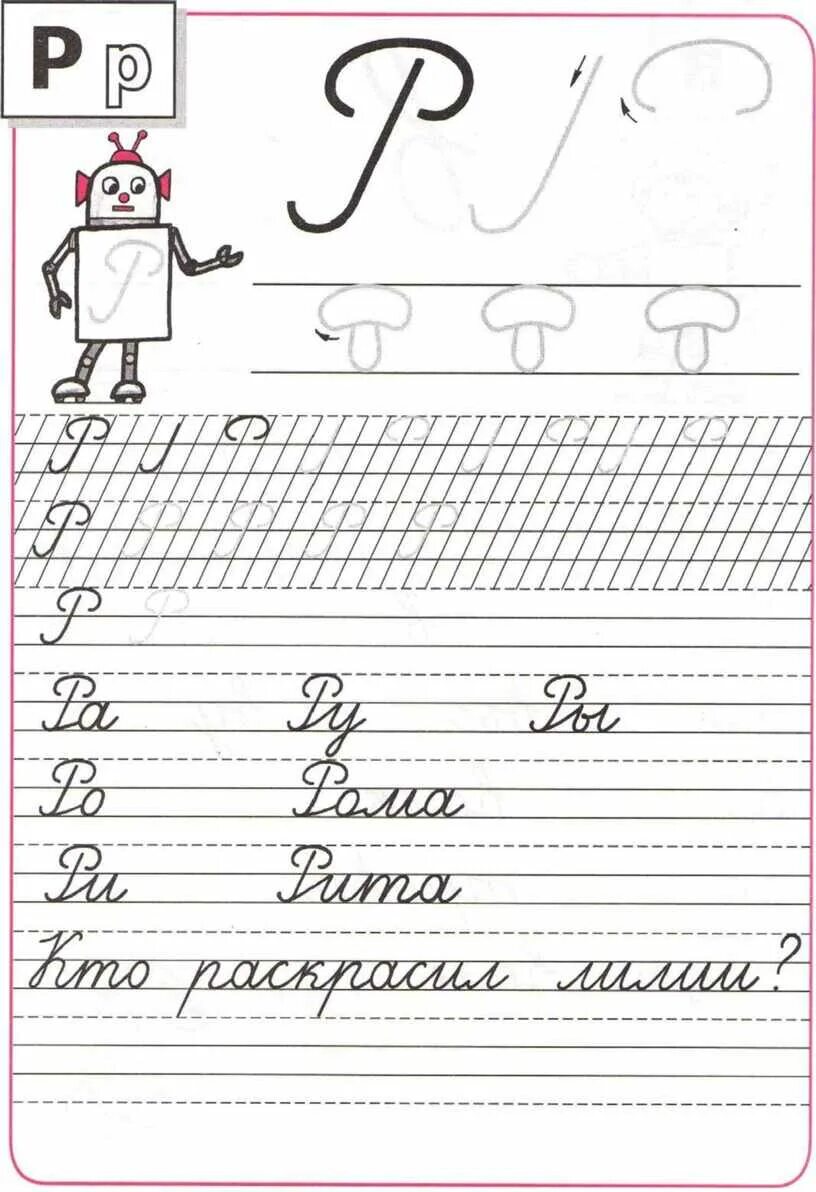 Р р
Р
Р
Р Р
Р Р Р Р Р
Р Р
Ра Ру Ры
Ро Рома
Ри Рита
Кто раскрасил лилии?